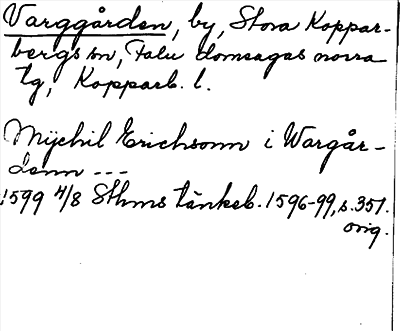 Varggården, by, Stora Koppar-
bergs sn, Falu domsagas norra
tg, Kopparb. l.
Mijchil Erichsonn i Wargår-
denn ---
1599 4/8 Sthms tänkeb. 1596-99, s. 351.
orig.